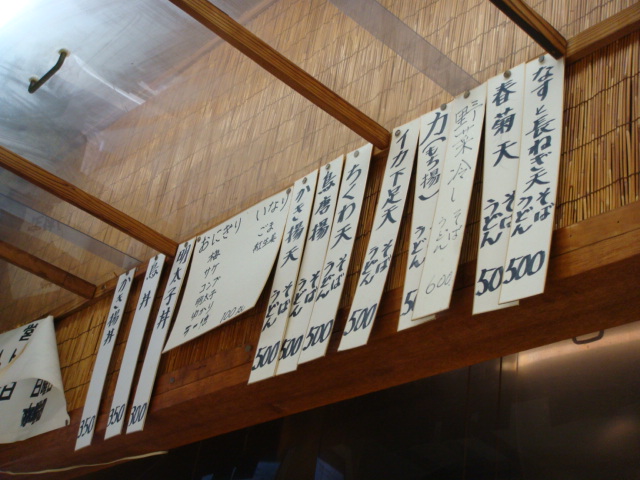 なすと長ねぎ天 そば うどん 500
春菊天 そば うどん 50
野菜冷し そば うどん 600
力(もち揚) うどん 5
イカ下足天 うどん 500
ちくわ天 そば うどん 500
鳥唐揚 そば うどん 500
かき揚天 そば うどん 500
いなり
ごま
おにぎり
梅
サケ
コンブ
明太子
100
明太子丼 300
鳥丼 350
かき揚丼 350